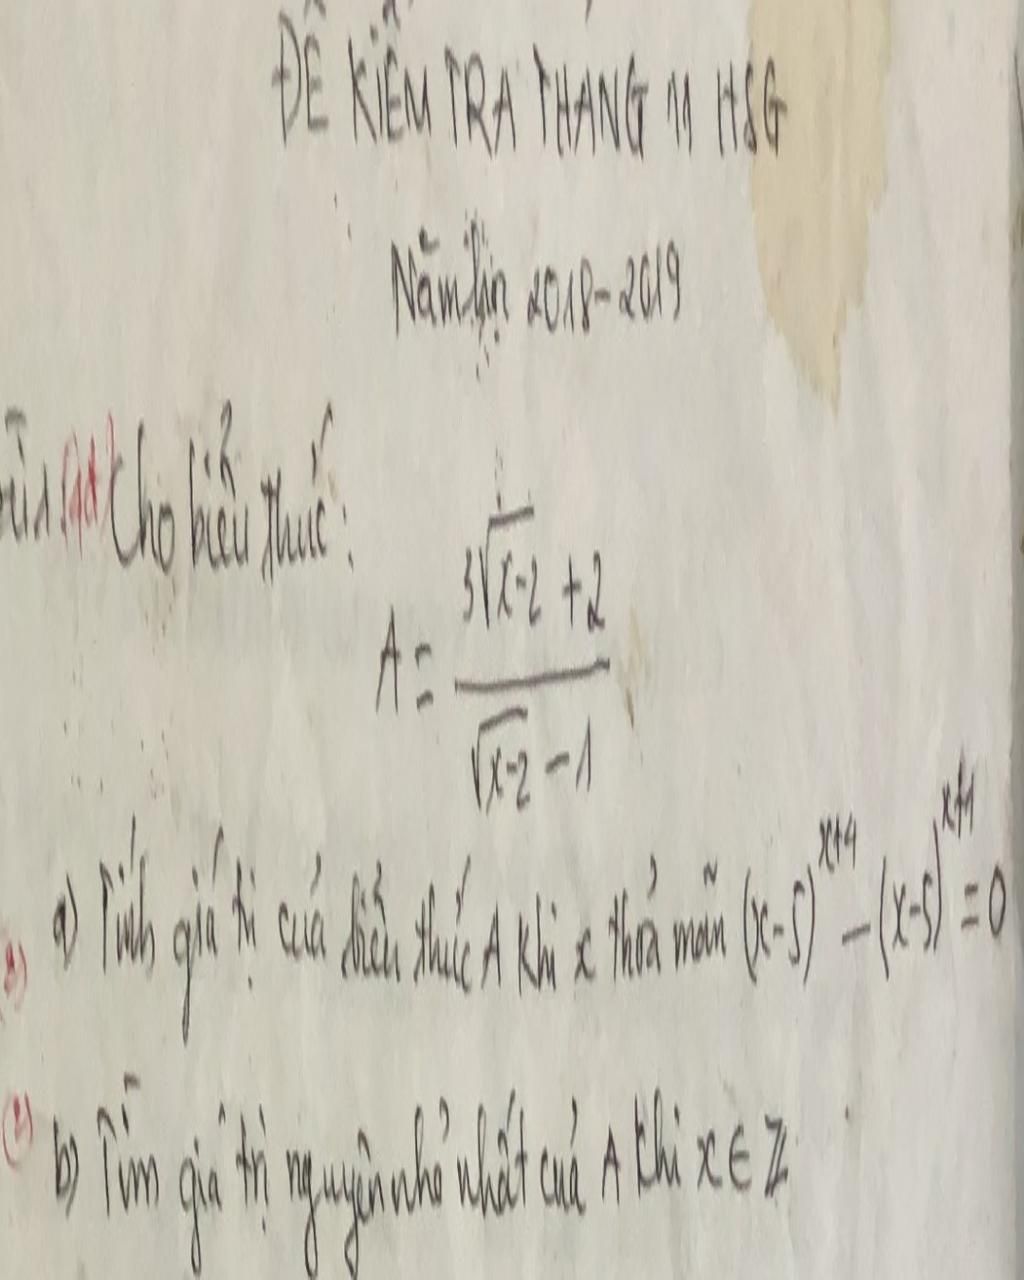 ĐỀ KIỂM TRA THÁNG 11 HSG
Năm học 2018-2019
(4đ) Cho biểu thức:
A = \frac{3\sqrt{x-2} + 2}{\sqrt{x-2} - 1}
a) Tính giá trị của biểu thức A khi x thỏa mãn (x-5)^{x+4} - (x-5)^{x+1} = 0
b) Tìm giá trị nguyên nhỏ nhất của A khi x ∈ Z